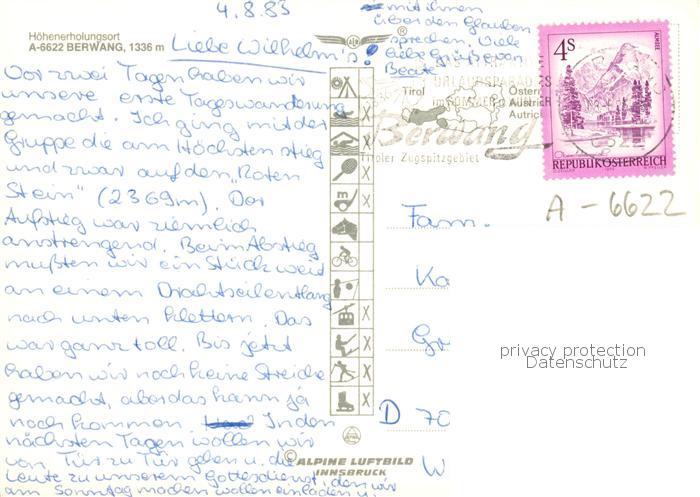 4.8.83
Höhenerholungsort
A-6622 BERWANG, 1336 m
Liebe Wilhelm's!
Vor zwei Tagen haben wir
unsere erste Tageswanderung
gemacht. Ich ging mit der
Gruppe die am Höchsten stieg
und zwar auf den "Roten
Stein" (2369m). Der
Aufstieg war ziemlich
anstrengend. Beim Abstieg
mußten wir ein Stück weit
an einem Drahtseil entlang
nach unten klettern. Das
war ganz toll. Bis jetzt
haben wir noch keine Streiche
gemacht, aber das kann ja
noch kommen. In den
nächsten Tagen wollen wir
von Tür zu Tür gehen u. die
Leute zu unserem Gottesdienst, den wir
am Sonntag machen wollen einladen u.
mit ihnen
über den Glauben
sprechen. Viele
liebe Grüße von
Beate
Tirol
URLAUBSPARADIES
im SOMMER
Berwang
Tiroler Zugspitzgebiet
Österr
Autrich
4S
ALMSEE
REPUBLIK ÖSTERREICH
A-6622
Fam.
Ka
Gr
D 70
W
privacy protection
Datenschutz
ALPINE LUFTBILD
INNSBRUCK